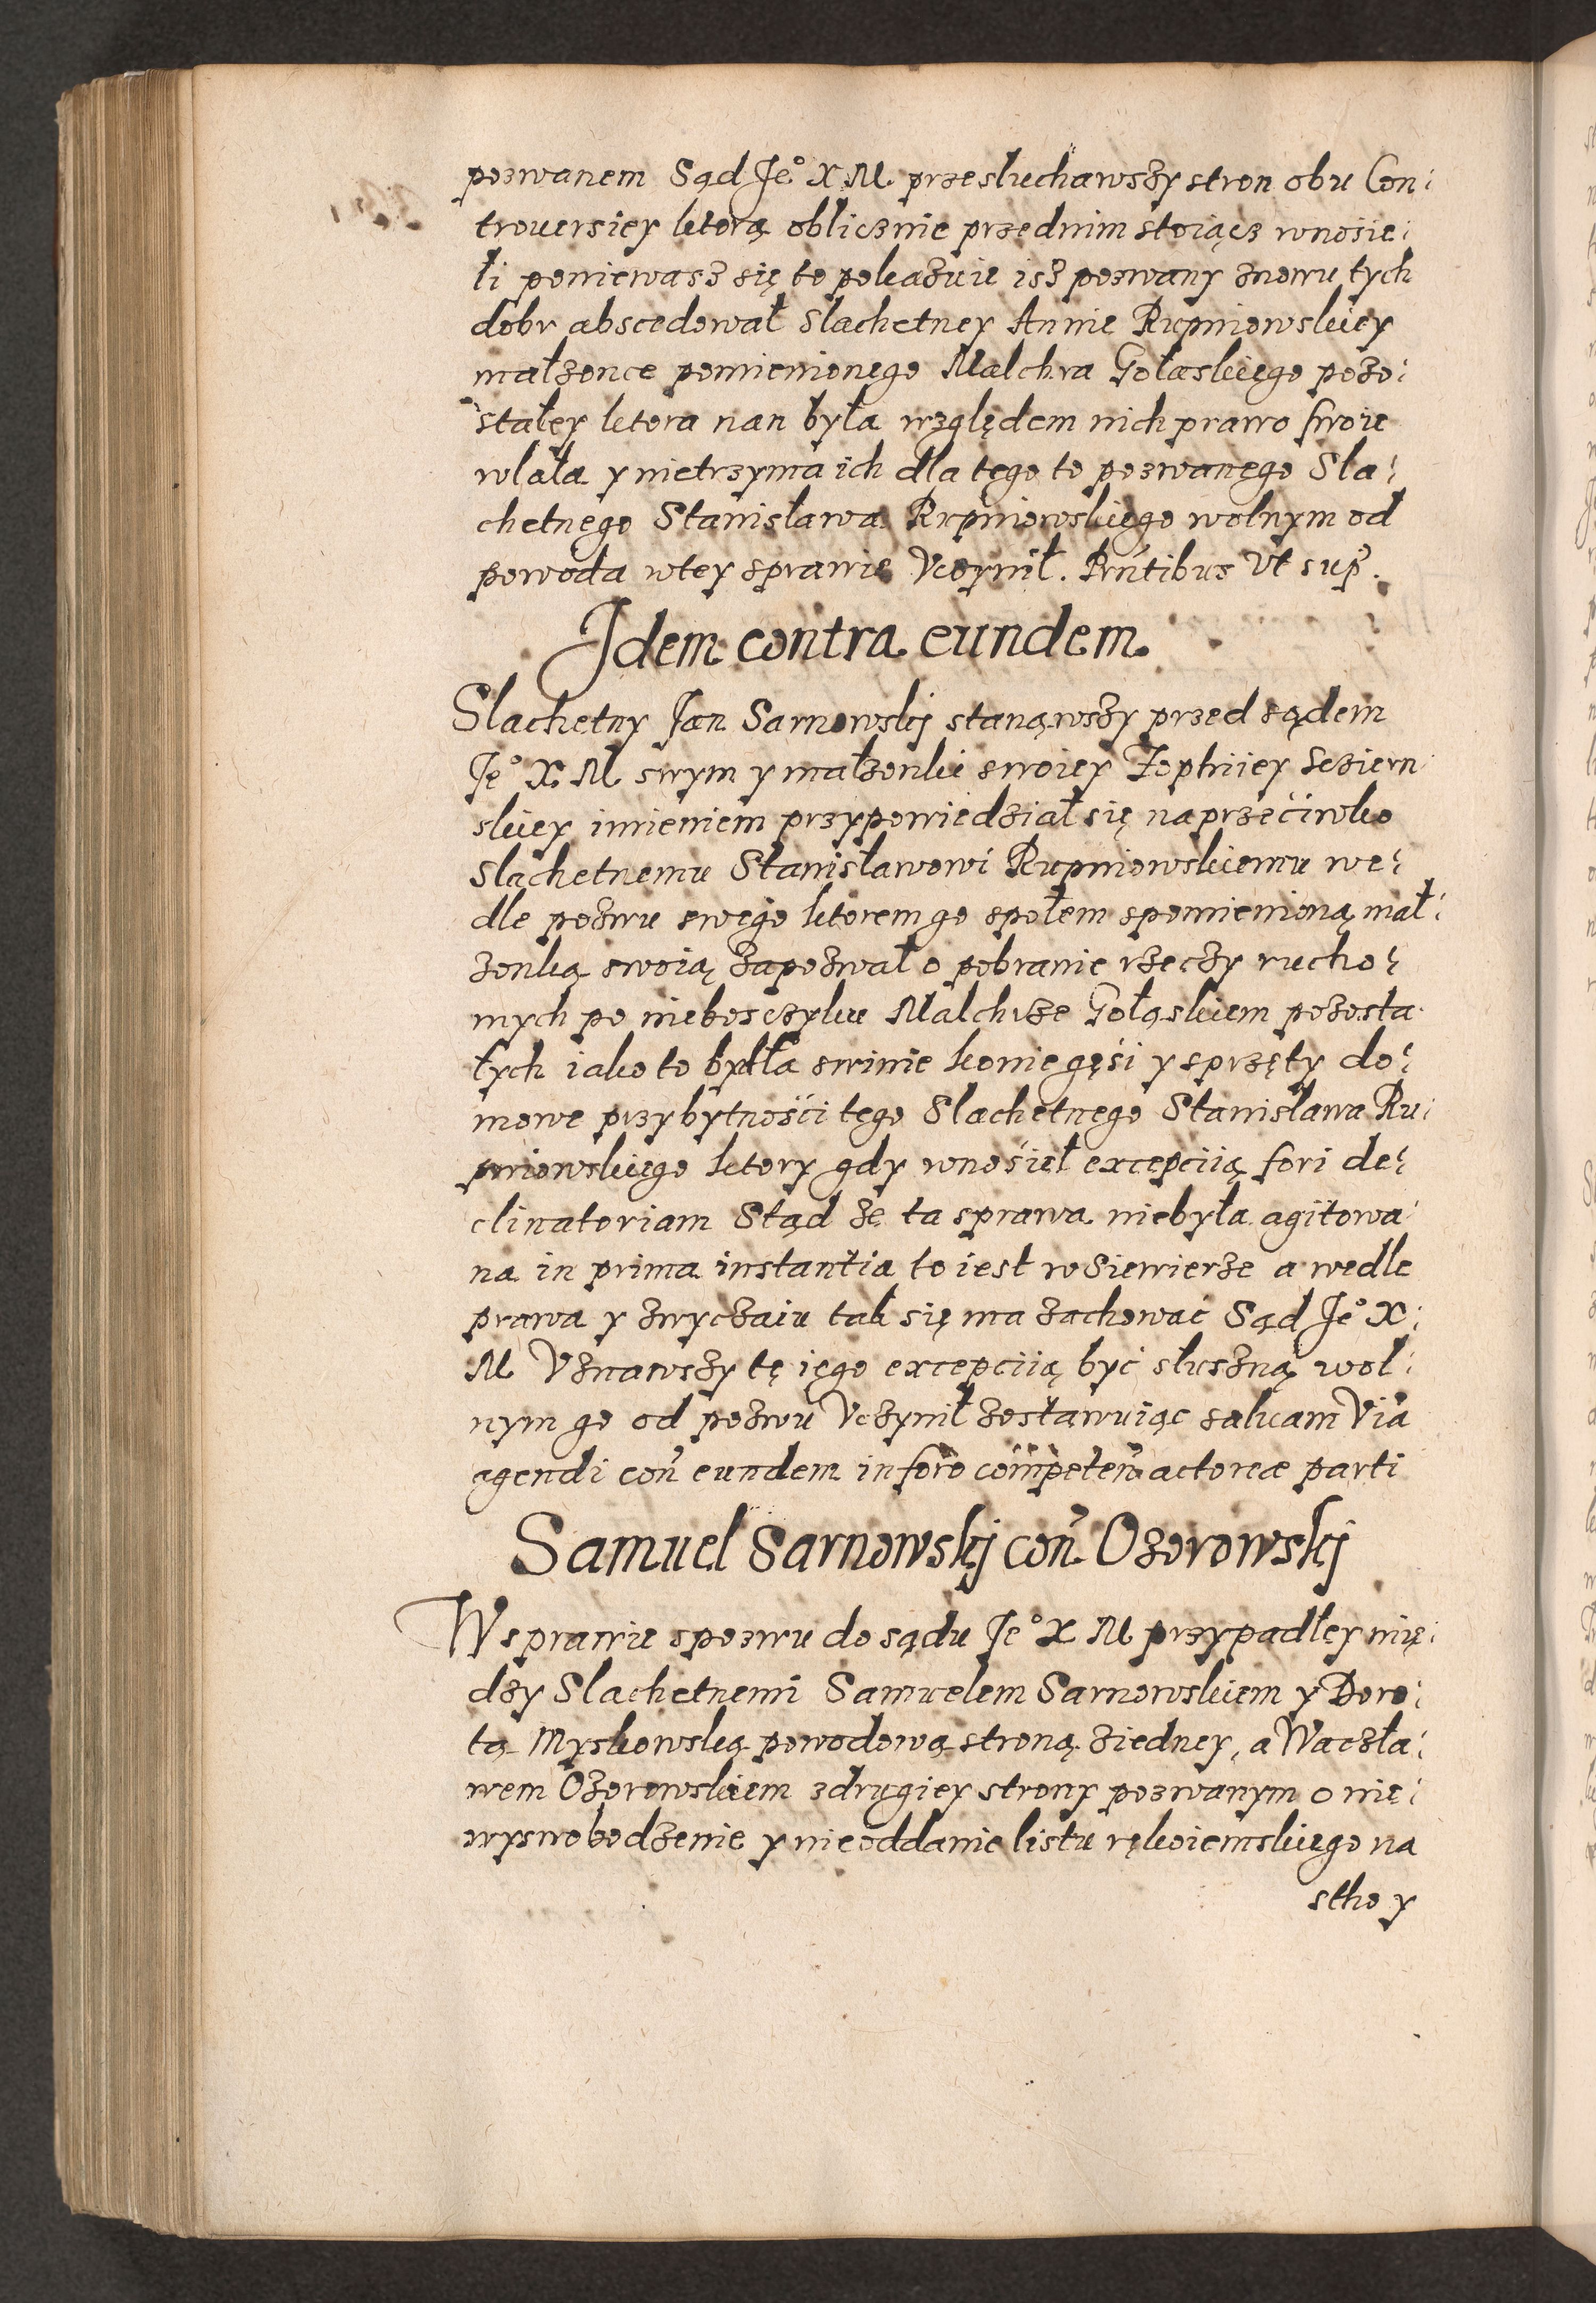 pozwanem Sąd Je° X M. przesluchawszy stron obu Con:
trouersiey ktorą oblicznie przednim stoiącz wnosie:
li poniewasz się to pokazuie isz pozwany znowu tych
dobr abscedował Slachetney Annie Rupniowskiey
małzonce pomienionego Malchra Gołaskiego pozo:
stałey ktora nan była względem nich prawo swoie
wlała y nietrzyma ich dla tego to pozwanego Sla:
chetnego Stanisława Rupniowskiego wolnym od
powoda wtey sprawie Vczynił. Prntibus Vt sup.
Jdem contra eundem.
Slachetny Jan Sarnowskj stanąwszy przed sądem
Je° X. M swym y małzonki swoiey Zophiiey Seziern
skiey imieniem przypowiedział się naprzeciwko
Slachetnemu Stanisławowi Rupniowskiemu we:
dle pozwu swego ktorem go społem spomienioną mał:
zonką swoią zapozwał o pobranie rzeczy rucho:
mych po nieboszczyku Malchrze Gołąskiem pozosta
łych iako to bydła swinie konie gęsi y sprzęty do:
mowe przybytności tego Slachetnego Stanisława Ru:
pniowskiego ktory gdy wnosieł excepciią fori de:
clinatoriam Stąd ze ta sprawa niebyła agitowa
na in prima instantia to iest w Siewierze a wedle
prawa y zwyczaiu tak się ma zachować Sąd Je° X:
M Vznawszy tę iego excepciią być słuszną wol:
nym go od pozwu Vczynił zostawuiąc saluam Via
agendi con eundem in foro competen actoreæ parti
Samuel Sarnowskj con Ozorowskj
Wsprawie spozwu do sądu Je° X M przypadłey mię:
dzy Slachetnemi Samuelem Sarnowskiem y Doro:
tą Myskowską powodową stroną ziedney, a Waczła:
wem Ozorowskiem zdrugiey strony pozwanym o nie:
wyswobodzenie y nieoddanie listu rękoiemskiego na
sthoy